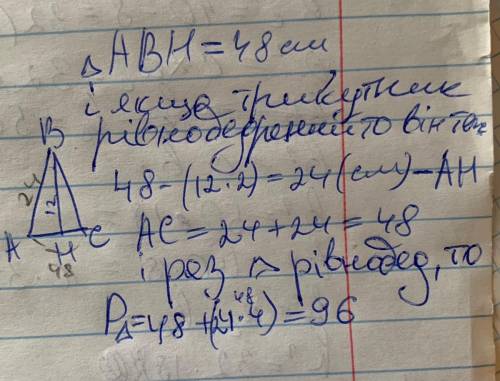 △ABH = 48 см
і якщо трикутник
рівнобедрений то він теж
48 - (12·2) = 24 (см) - AH
AC = 24 + 24 = 48
і роз △ рівнобед, то
P△ = 48 + (24·4) = 96
48
B
24
12
A H C
48